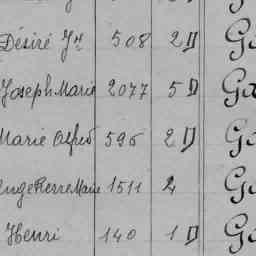 Désiré Jh 508 2 D Ga
Joseph Marie 2077 5 D Ga
Marie Alfred 596 2 D Ga
Ange Pierre Marie 1511 2 Ga
Henri 140 1 D Ga